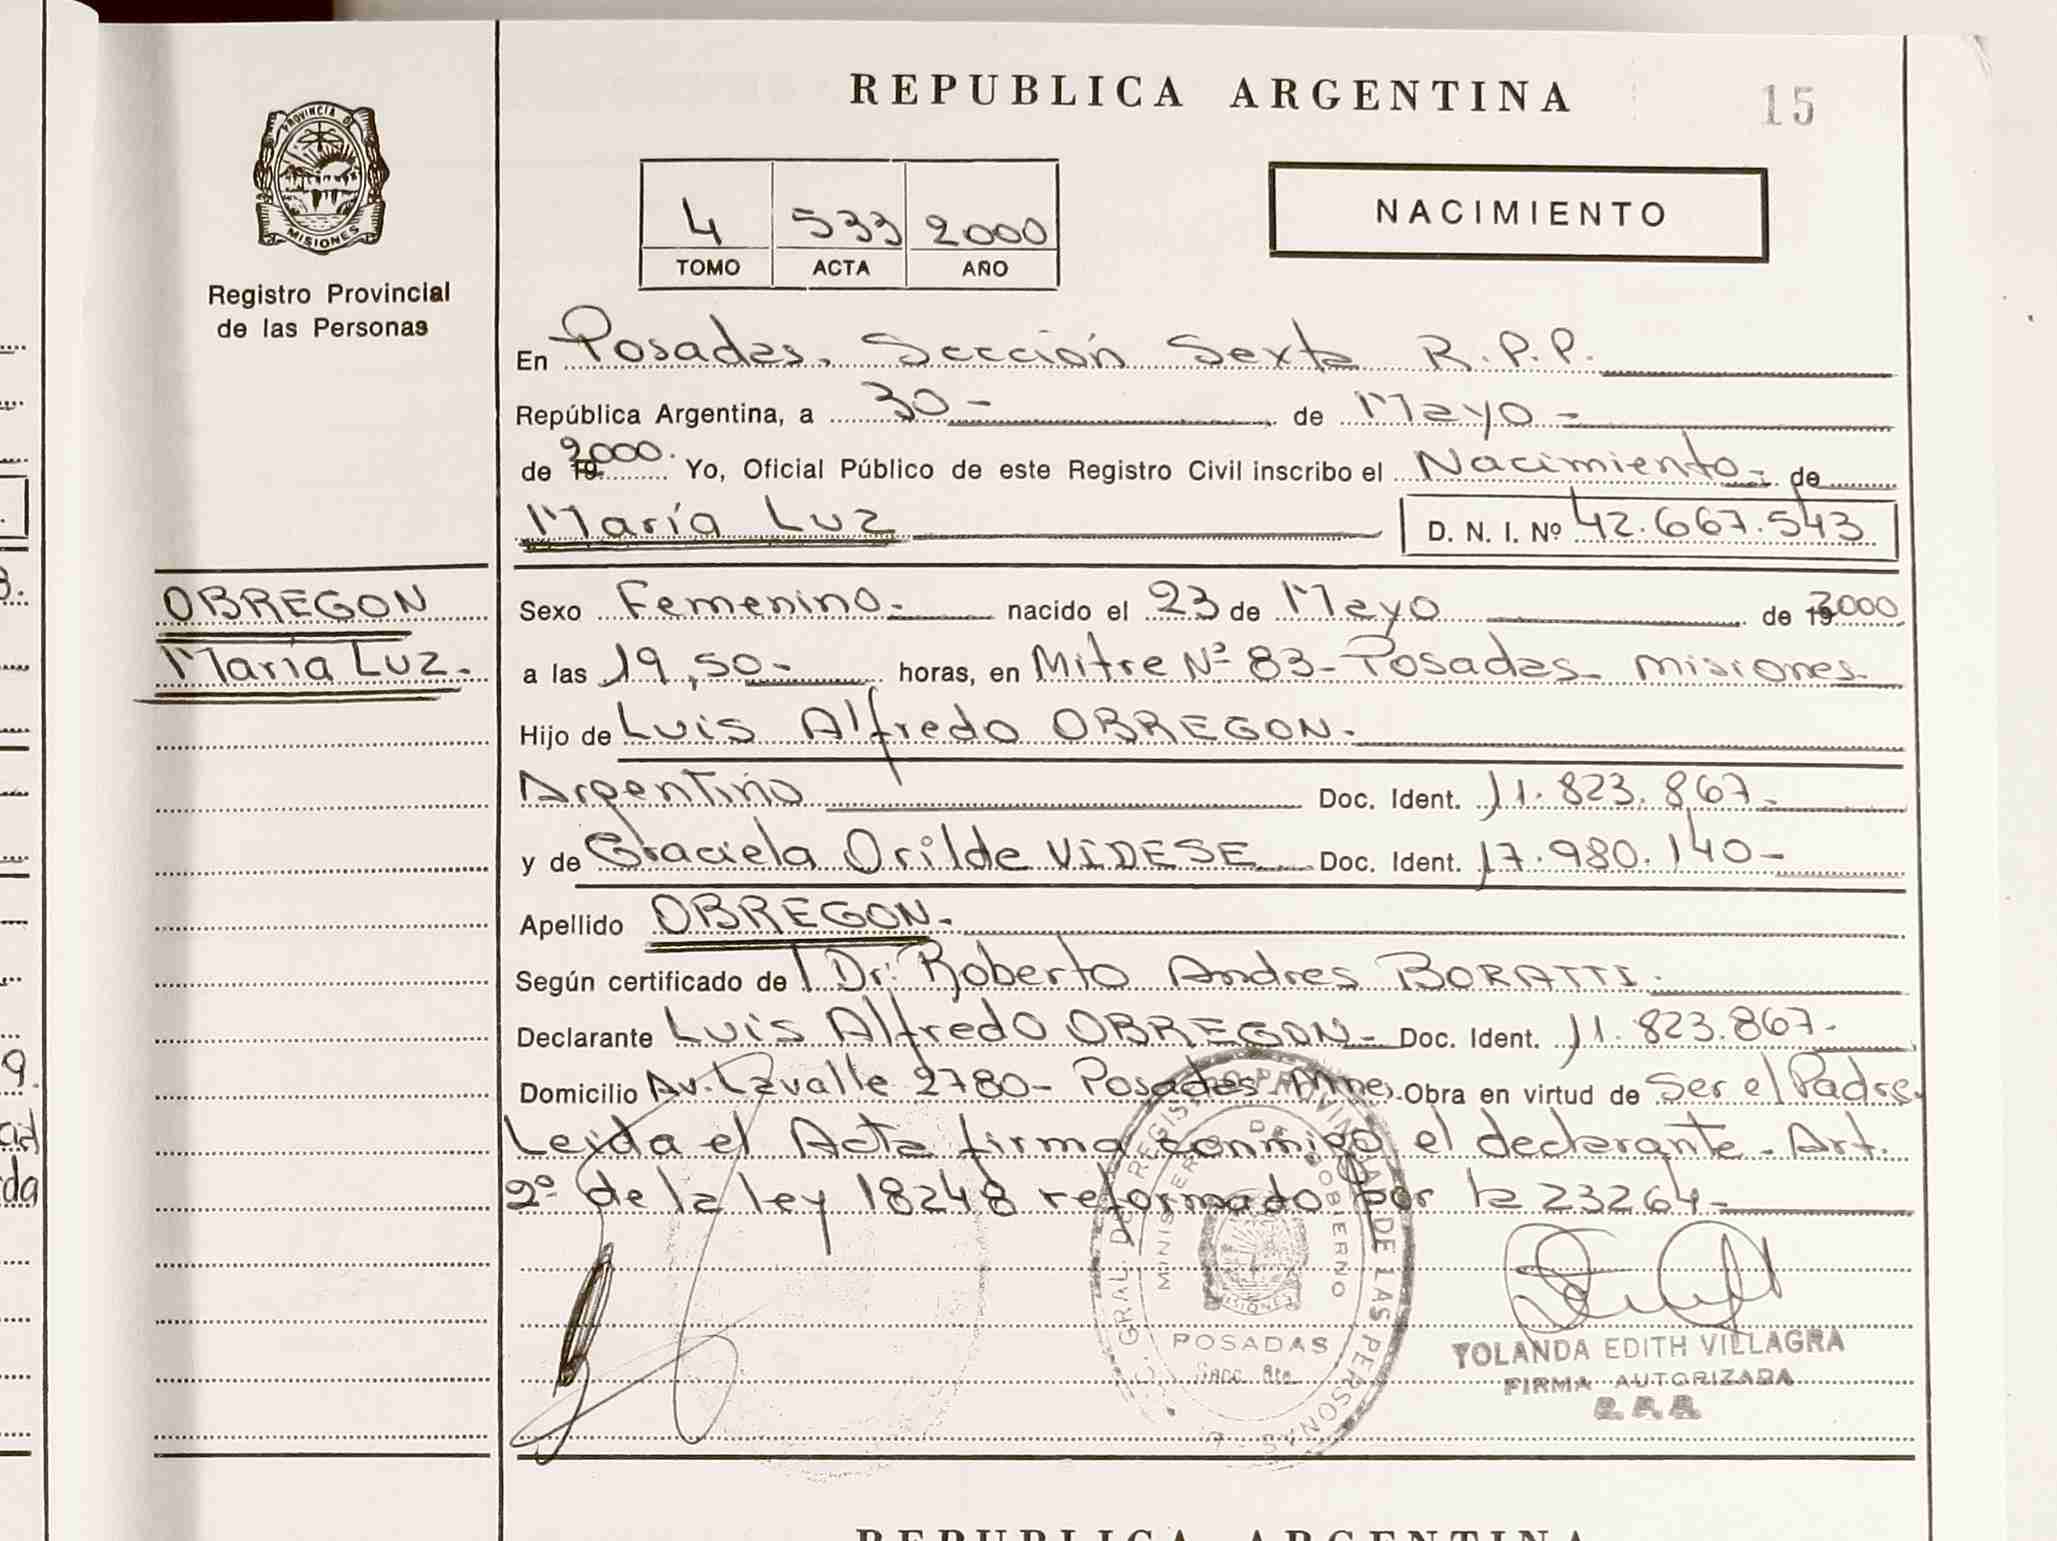 REPUBLICA ARGENTINA
15
PROVINCIA DE
MISIONES
Registro Provincial
de las Personas
4 533 2000
TOMO ACTA AÑO
NACIMIENTO
En Posadas. Sección Sexta R.P.P.
República Argentina, a 30 - de Mayo -
de 19 2000. Yo, Oficial Público de este Registro Civil inscribo el Nacimiento - de
María Luz D. N. I. Nº 42.667.543
OBREGON
María Luz.
Sexo Femenino - nacido el 23 de Mayo de 19 2000
a las 19,50 - horas, en Mitre Nº 83 - Posadas - misiones -
Hijo de Luis Alfredo OBREGON -
Argentino Doc. Ident. 11.823.867 -
y de Graciela Orilde VIDESE Doc. Ident. 17.980.140 -
Apellido OBREGON -
Según certificado de Dr. Roberto Andres BORATTI.
Declarante Luis Alfredo OBREGON - Doc. Ident. 11.823.867 -
Domicilio Av. Lavalle 2780 - Posadas - Mnes. Obra en virtud de Ser el Padre.
Leída el Acta firma conmigo el declarante. Art.
2º de la ley 18248 reformado por la 23264 -
GRAL. DEL REGISTRO PROVINCIAL DE LAS PERSONAS
MINISTERIO DE GOBIERNO
MISIONES
POSADAS
YOLANDA EDITH VILLAGRA
FIRMA AUTORIZADA
REPUBLICA ARGENTINA